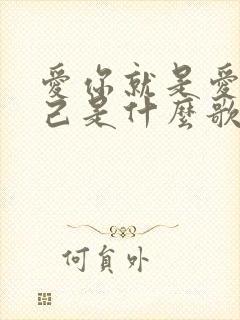 愛你就是愛
己是什麼歌
何員外